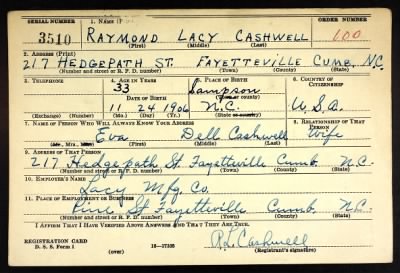 SERIAL NUMBER 1. NAME (Print) ORDER NUMBER
3510 RAYMOND LACY CASHWELL 100
(First) (Middle) (Last)
2. ADDRESS (Print)
217 HEDGEPATH ST. FAYETTEVILLE CUMB, N.C.
(Number and street or R. F. D. number) (Town) (County) (State)
3. TELEPHONE 4. AGE IN YEARS 5. PLACE OF BIRTH 6. COUNTRY OF CITIZENSHIP
33 Sampson
DATE OF BIRTH (Town or county)
11 24 1906 N.C. U.S.A.
(Exchange) (Number) (Mo.) (Day) (Yr.) (State or country)
7. NAME OF PERSON WHO WILL ALWAYS KNOW YOUR ADDRESS 8. RELATIONSHIP OF THAT PERSON
Eva Dell Cashwell Wife
(Mr., Mrs., Miss) (First) (Middle) (Last)
9. ADDRESS OF THAT PERSON
217 Hedgepath St. Fayetteville Cumb. N.C.
(Number and street or R. F. D. number) (Town) (County) (State)
10. EMPLOYER'S NAME
Lacy Mfg. Co.
11. PLACE OF EMPLOYMENT OR BUSINESS
Pine St Fayetteville Cumb. N.C.
(Number and street or R. F. D. number) (Town) (County) (State)
I AFFIRM THAT I HAVE VERIFIED ABOVE ANSWERS AND THAT THEY ARE TRUE.
REGISTRATION CARD
D. S. S. Form 1 (over) 16—17105 R.L. Cashwell
(Registrant's signature)